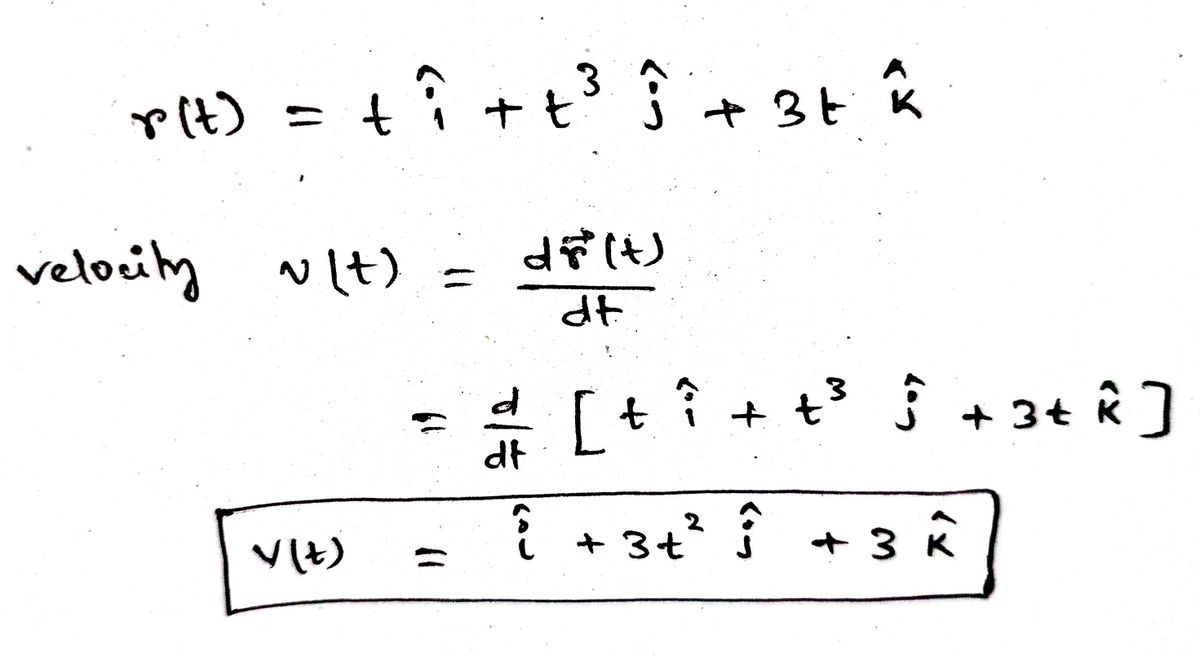 r(t) = t î + t³ ĵ + 3t k̂
velocity v(t) = dr⃗(t)/dt
= d/dt [t î + t³ ĵ + 3t k̂]
v(t) = î + 3t² ĵ + 3 k̂